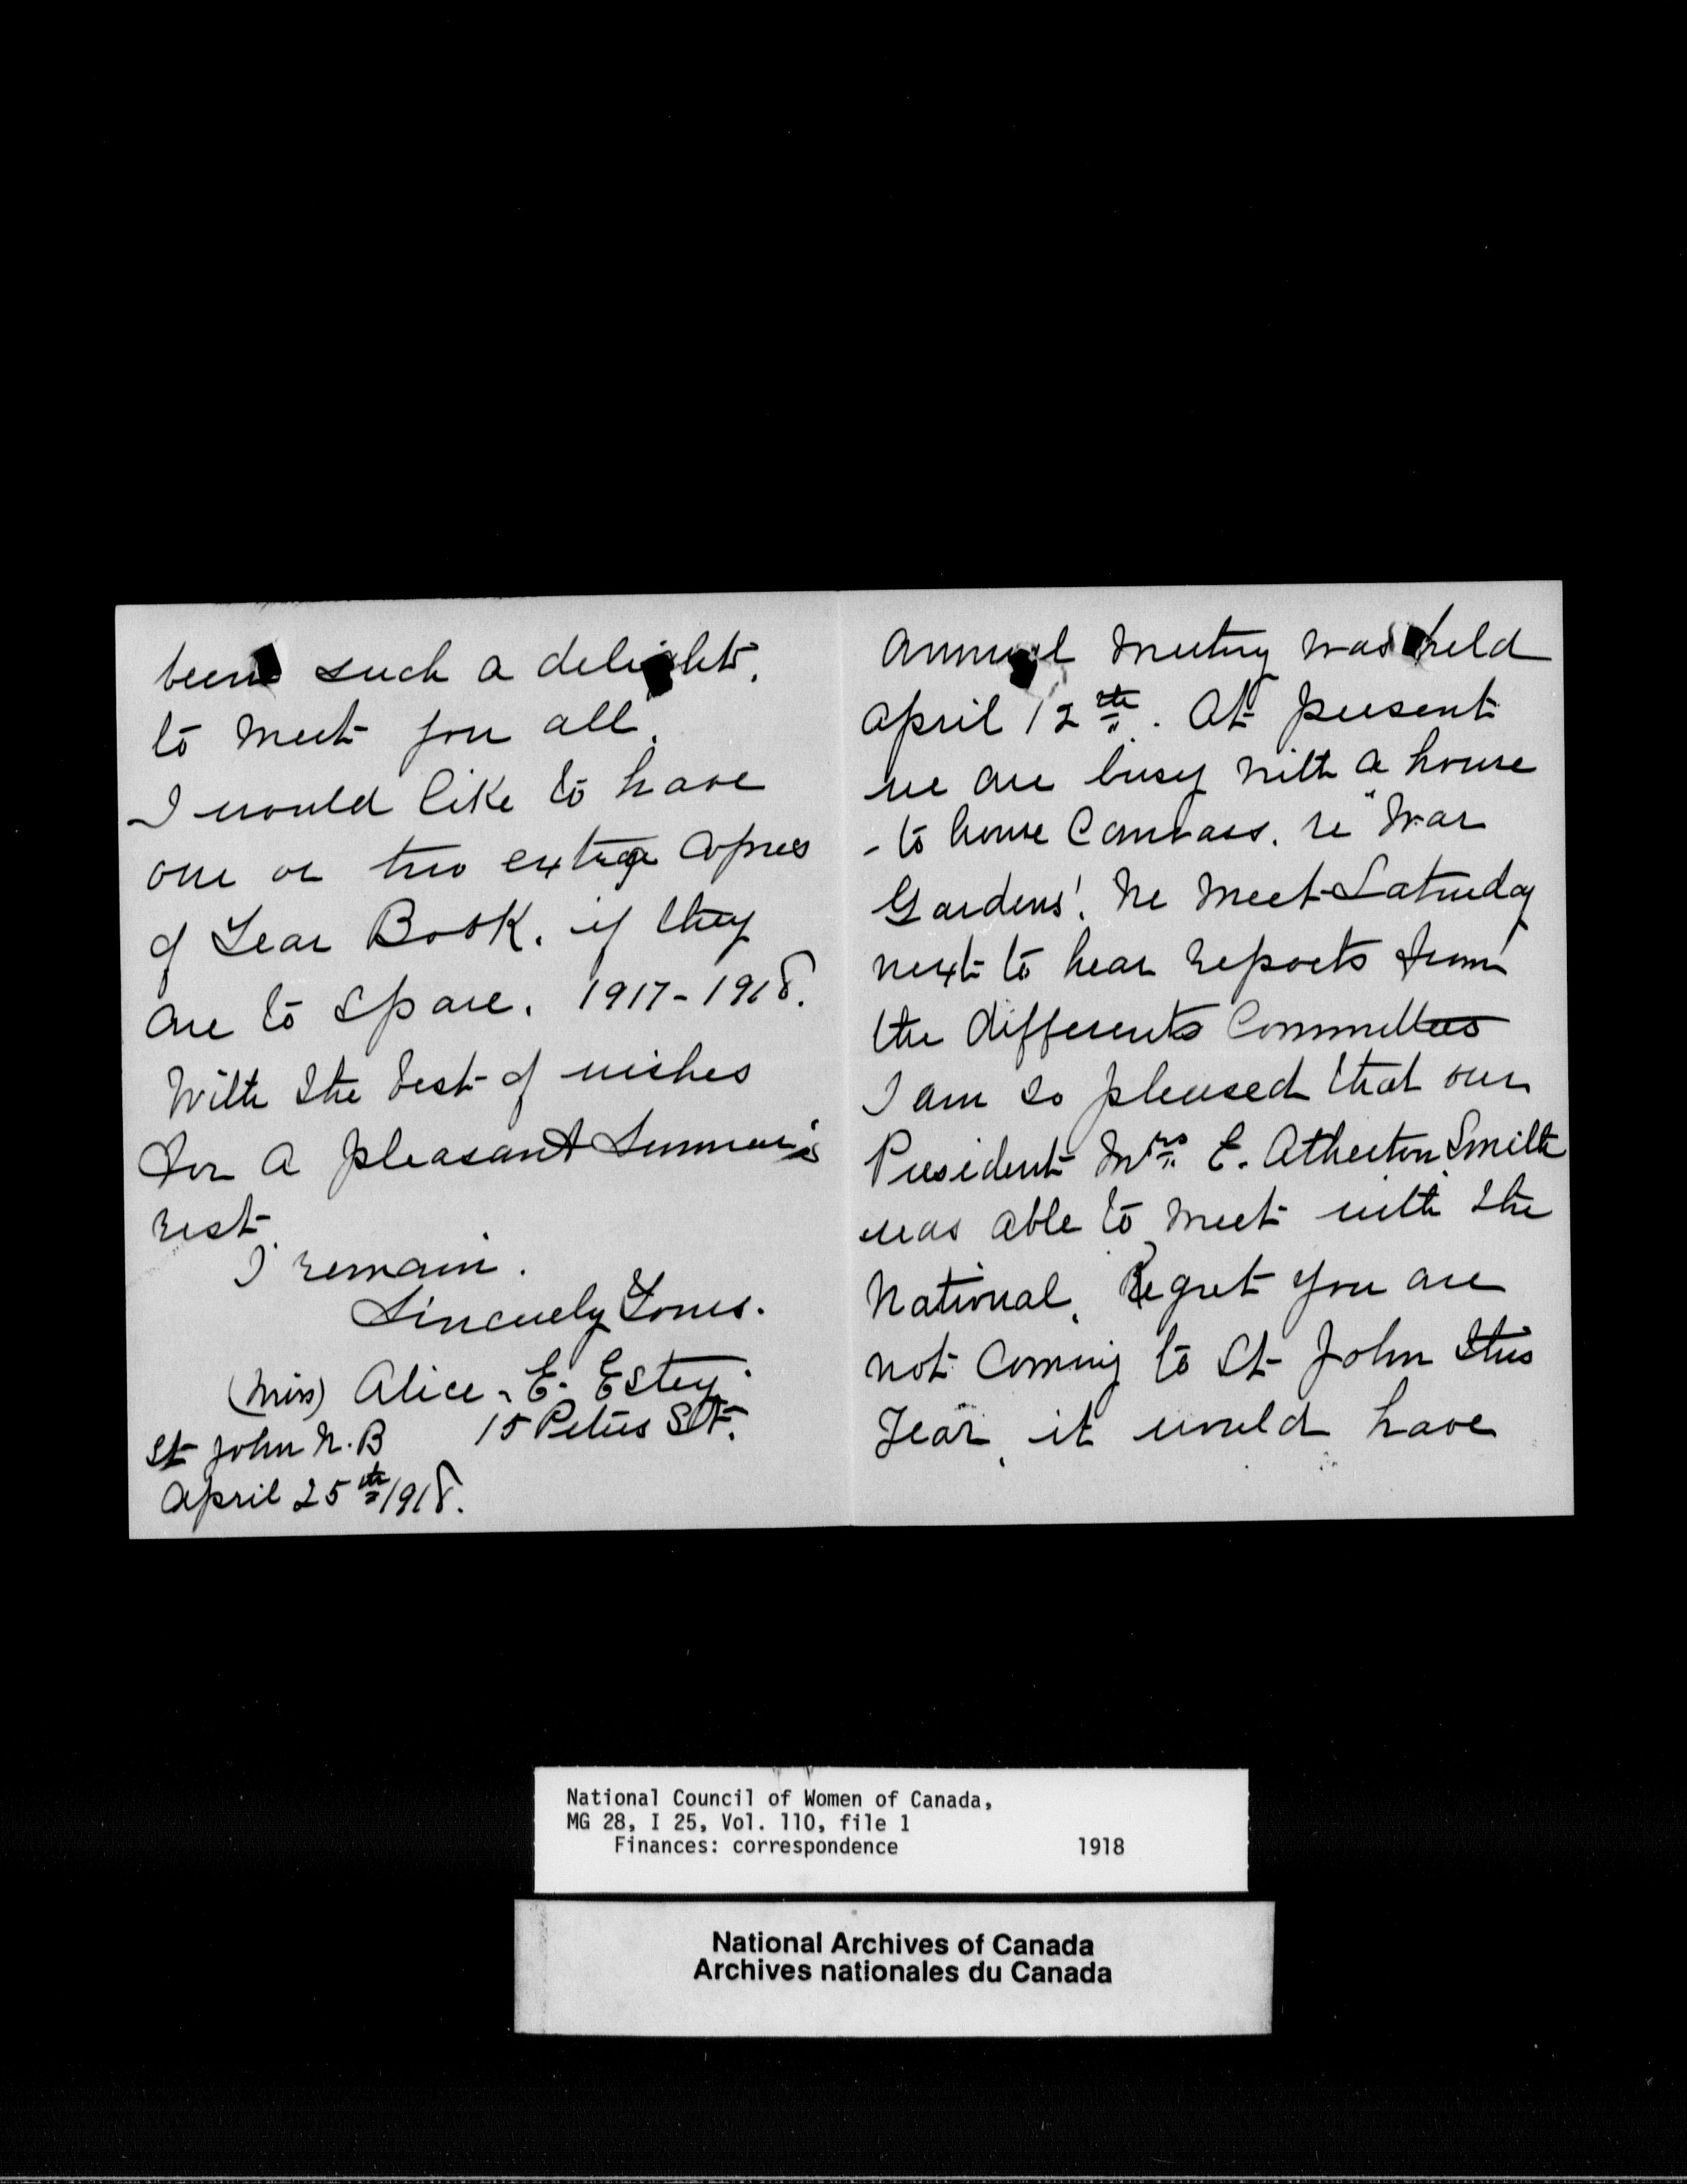 been such a delight,
to meet you all.
I would like to have
one or two extra copies
of Year Book. if they
are to spare. 1917-1918.
With the best of wishes
for a pleasant Summer's
rest.
I remain.
Sincerely Yours.
(Miss) Alice. E. Estey.
St John N.B 15 Peters St.
April 25th 1918.
Annual Meeting was held
April 12th. At present
we are busy with a house
- to house Canvass. re "War
Gardens'. We meet Saturday
next to hear reports from
the differents Committees
I am so pleased that our
President Mrs E. Atherton Smith
was able to meet with the
National, Regret you are
not coming to St John this
Year, it would have
National Council of Women of Canada,
MG 28, I 25, Vol. 110, file 1
Finances: correspondence 1918
National Archives of Canada
Archives nationales du Canada